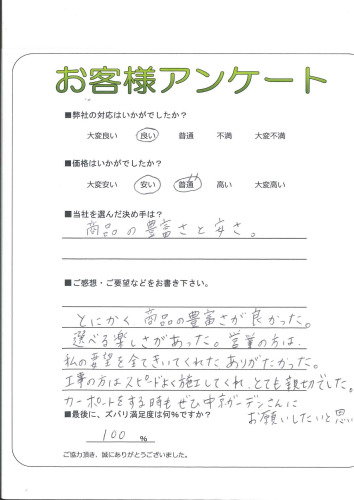 お客様アンケート
■弊社の対応はいかがでしたか?
大変良い 良い 普通 不満 大変不満
■価格はいかがでしたか?
大変安い 安い 普通 高い 大変高い
■当社を選んだ決め手は?
商品の豊富さと安さ。
■ご感想・ご要望などをお書き下さい。
とにかく、商品の豊富さが良かった。
選べる楽しさがあった。営業の方は、
私の要望を全てきいてくれたありがたかった。
工事の方はスピードよく施工してくれ、とても親切でした。
カーポートをする時もぜひ中京ガーデンさんに
お願いしたいと思い
■最後に、ズバリ満足度は何%ですか?
100 %
ご協力頂き、誠にありがとうございました。